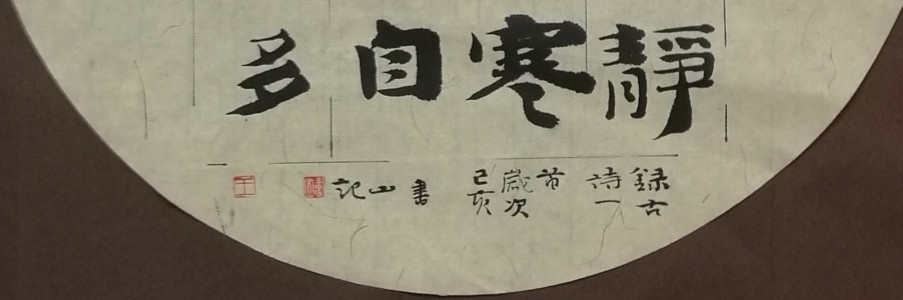 靜
寒
自
多
録古
詩一
首
歲次
己亥
書
山
記